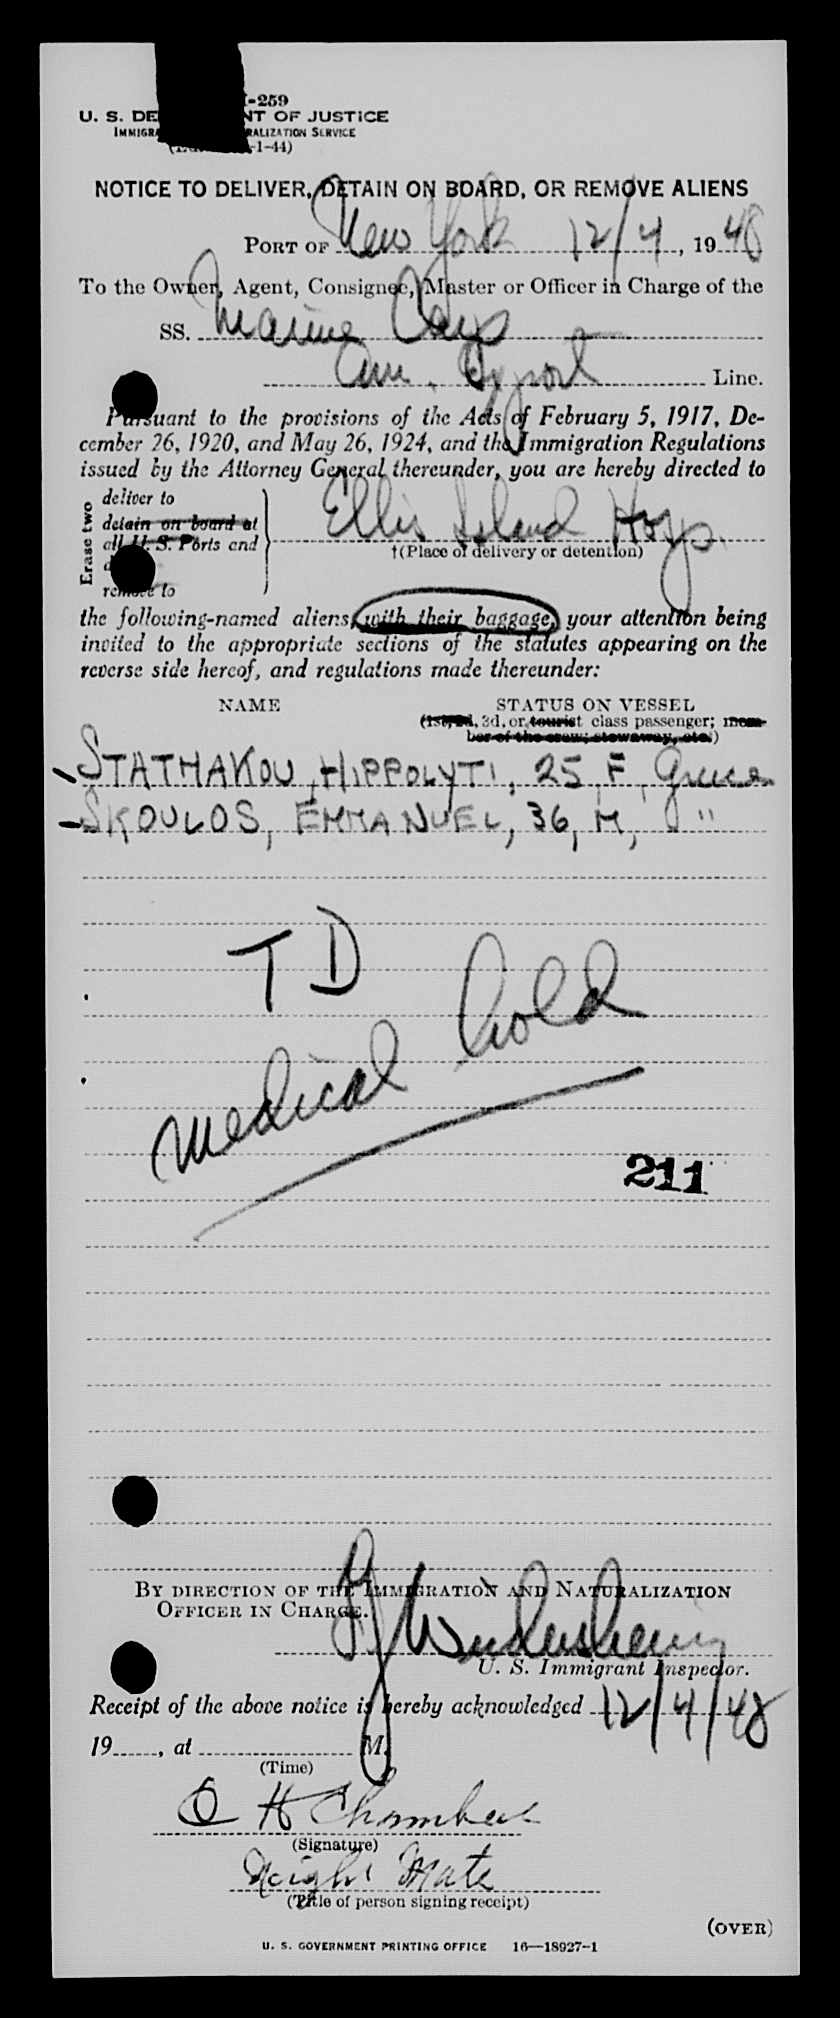 I-259
U. S. DE NT OF JUSTICE
IMMIGRA RALIZATION SERVICE
-1-44)
NOTICE TO DELIVER, DETAIN ON BOARD, OR REMOVE ALIENS
PORT OF New York 12/4, 1948
To the Owner, Agent, Consignee, Master or Officer in Charge of the
SS. Marine Carp
Am. Export Line.
Pursuant to the provisions of the Acts of February 5, 1917, De-
cember 26, 1920, and May 26, 1924, and the Immigration Regulations
issued by the Attorney General thereunder, you are hereby directed to
Erase two
deliver to
detain on board at
all U. S. Ports and
remove to
Ellis Island Hosp.
†(Place of delivery or detention)
the following-named aliens, with their baggage, your attention being
invited to the appropriate sections of the statutes appearing on the
reverse side hereof, and regulations made thereunder:
NAME STATUS ON VESSEL
(1st, 2d, 3d, or tourist class passenger; mem-
ber of the crew; stowaway, etc.)
STATHAKOU, HIPPOLYTI, 25, F, Greece
SKOULOS, EMMANUEL, 36, M, "
TD
medical hold
211
BY DIRECTION OF THE IMMIGRATION AND NATURALIZATION
OFFICER IN CHARGE.
U. S. Immigrant Inspector.
Receipt of the above notice is hereby acknowledged 12/4/48
19 , at M.
(Time)
O H Chambers
(Signature)
Night Mate
(Title of person signing receipt)
(OVER)
U. S. GOVERNMENT PRINTING OFFICE 16—18927-1